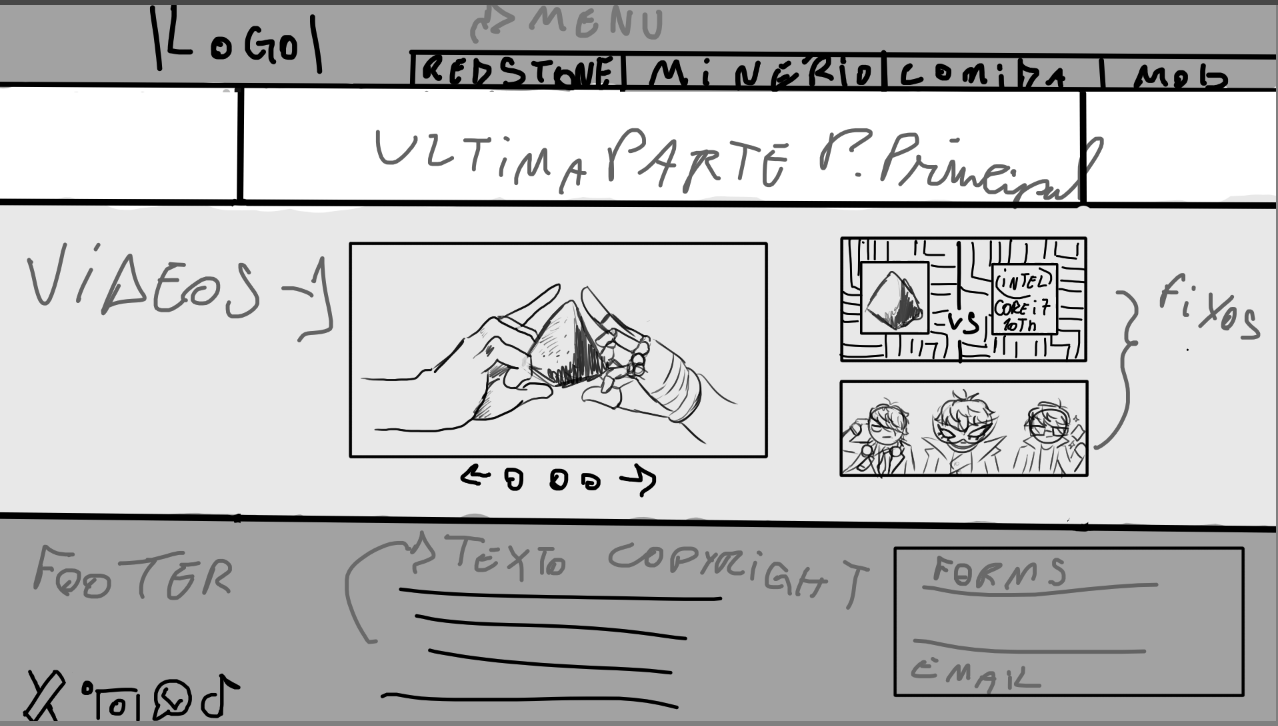 LOGO
MENU
REDSTONE MiNÉRIO COMiDA MOD
ULTiMA PARTE P. Principal
ViDEOS
FiXOS
(iNTEL)
CORE i7
10Th
VS
FOOTER
TEXTO COPYRiGHT
FORMS
EMAIL